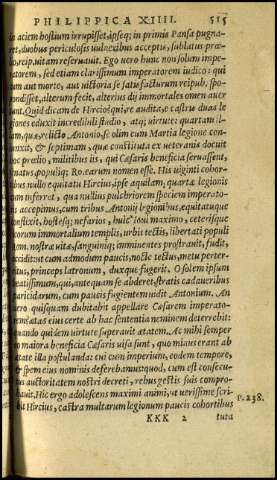 PHILIPPICA XIIII. 515
in aciem hostium irrupisset, ipseq; in primis Pansa pugna-
ret, duobus periculosis uulneribus acceptis, sublatus præ-
lio, reip. uitam reseruauit. Ego uero hunc non solum impe-
ratorem, sed etiam clarissimum imperatorem iudico: qui
cum aut morte, aut uictoria se satisfacturum reipub. spo-
pondisset, alterum fecit, alterius dij immortales omen auer
tant. Quid dicam de Hircio? qui, re audita, è castris duas le
giones eduxit incredibili studio, atq; uirtute: quartam il-
lam, quæ, relicto Antonio, se olim cum Martia legione con
iunxit, & septimam, quæ constituta ex ueteranis docuit
hoc prælio, militibus iis, qui Cæsaris beneficia seruassent,
senatus, populiq; Ro. carum nomen esse. His uiginti cohor-
tibus nullo equitatu Hircius, ipse aquilam quartæ legionis
cum inferret, qua nullius pulchriorem speciem imperato-
ris accepimus, cum tribus Antonij legionibus, equitatuque
conflixit, hostesq; nefarios, huic Ioui maximo, ceterisque
deorum immortalium templis, urbis tectis, libertati populi
Rom. nostræ uitæ, sanguiniq; imminentes prostrauit, fudit,
occidit: ut cum admodum paucis, nocte tectus, metu perter-
ritus, princeps latronum, duxque fugerit. O solem ipsum
beatissimum, qui, antequam se abderet, stratis cadaueribus
parricidarum, cum paucis fugientem uidit Antonium. An
uero quisquam dubitabit appellare Cæsarem imperato-
rem? ætas eius certe ab hac sententia neminem deterrebit:
quando quidem uirtute superauit ætatem. Ac mihi semper
eo maiora beneficia Cæsaris uisa sunt, quo minus erant ab
ætate illa postulanda: cui cum imperium, eodem tempore,
& spem eius nominis deferebamus: quod, cum est consecu-
tus auctoritatem nostri decreti, rebus gestis suis compro-
bauit. Hic ergo adolescens maximi animi, ut uerissime scri-
bit Hircius, castra multarum legionum paucis cohortibus
P. 238.
KKK 2 tuta